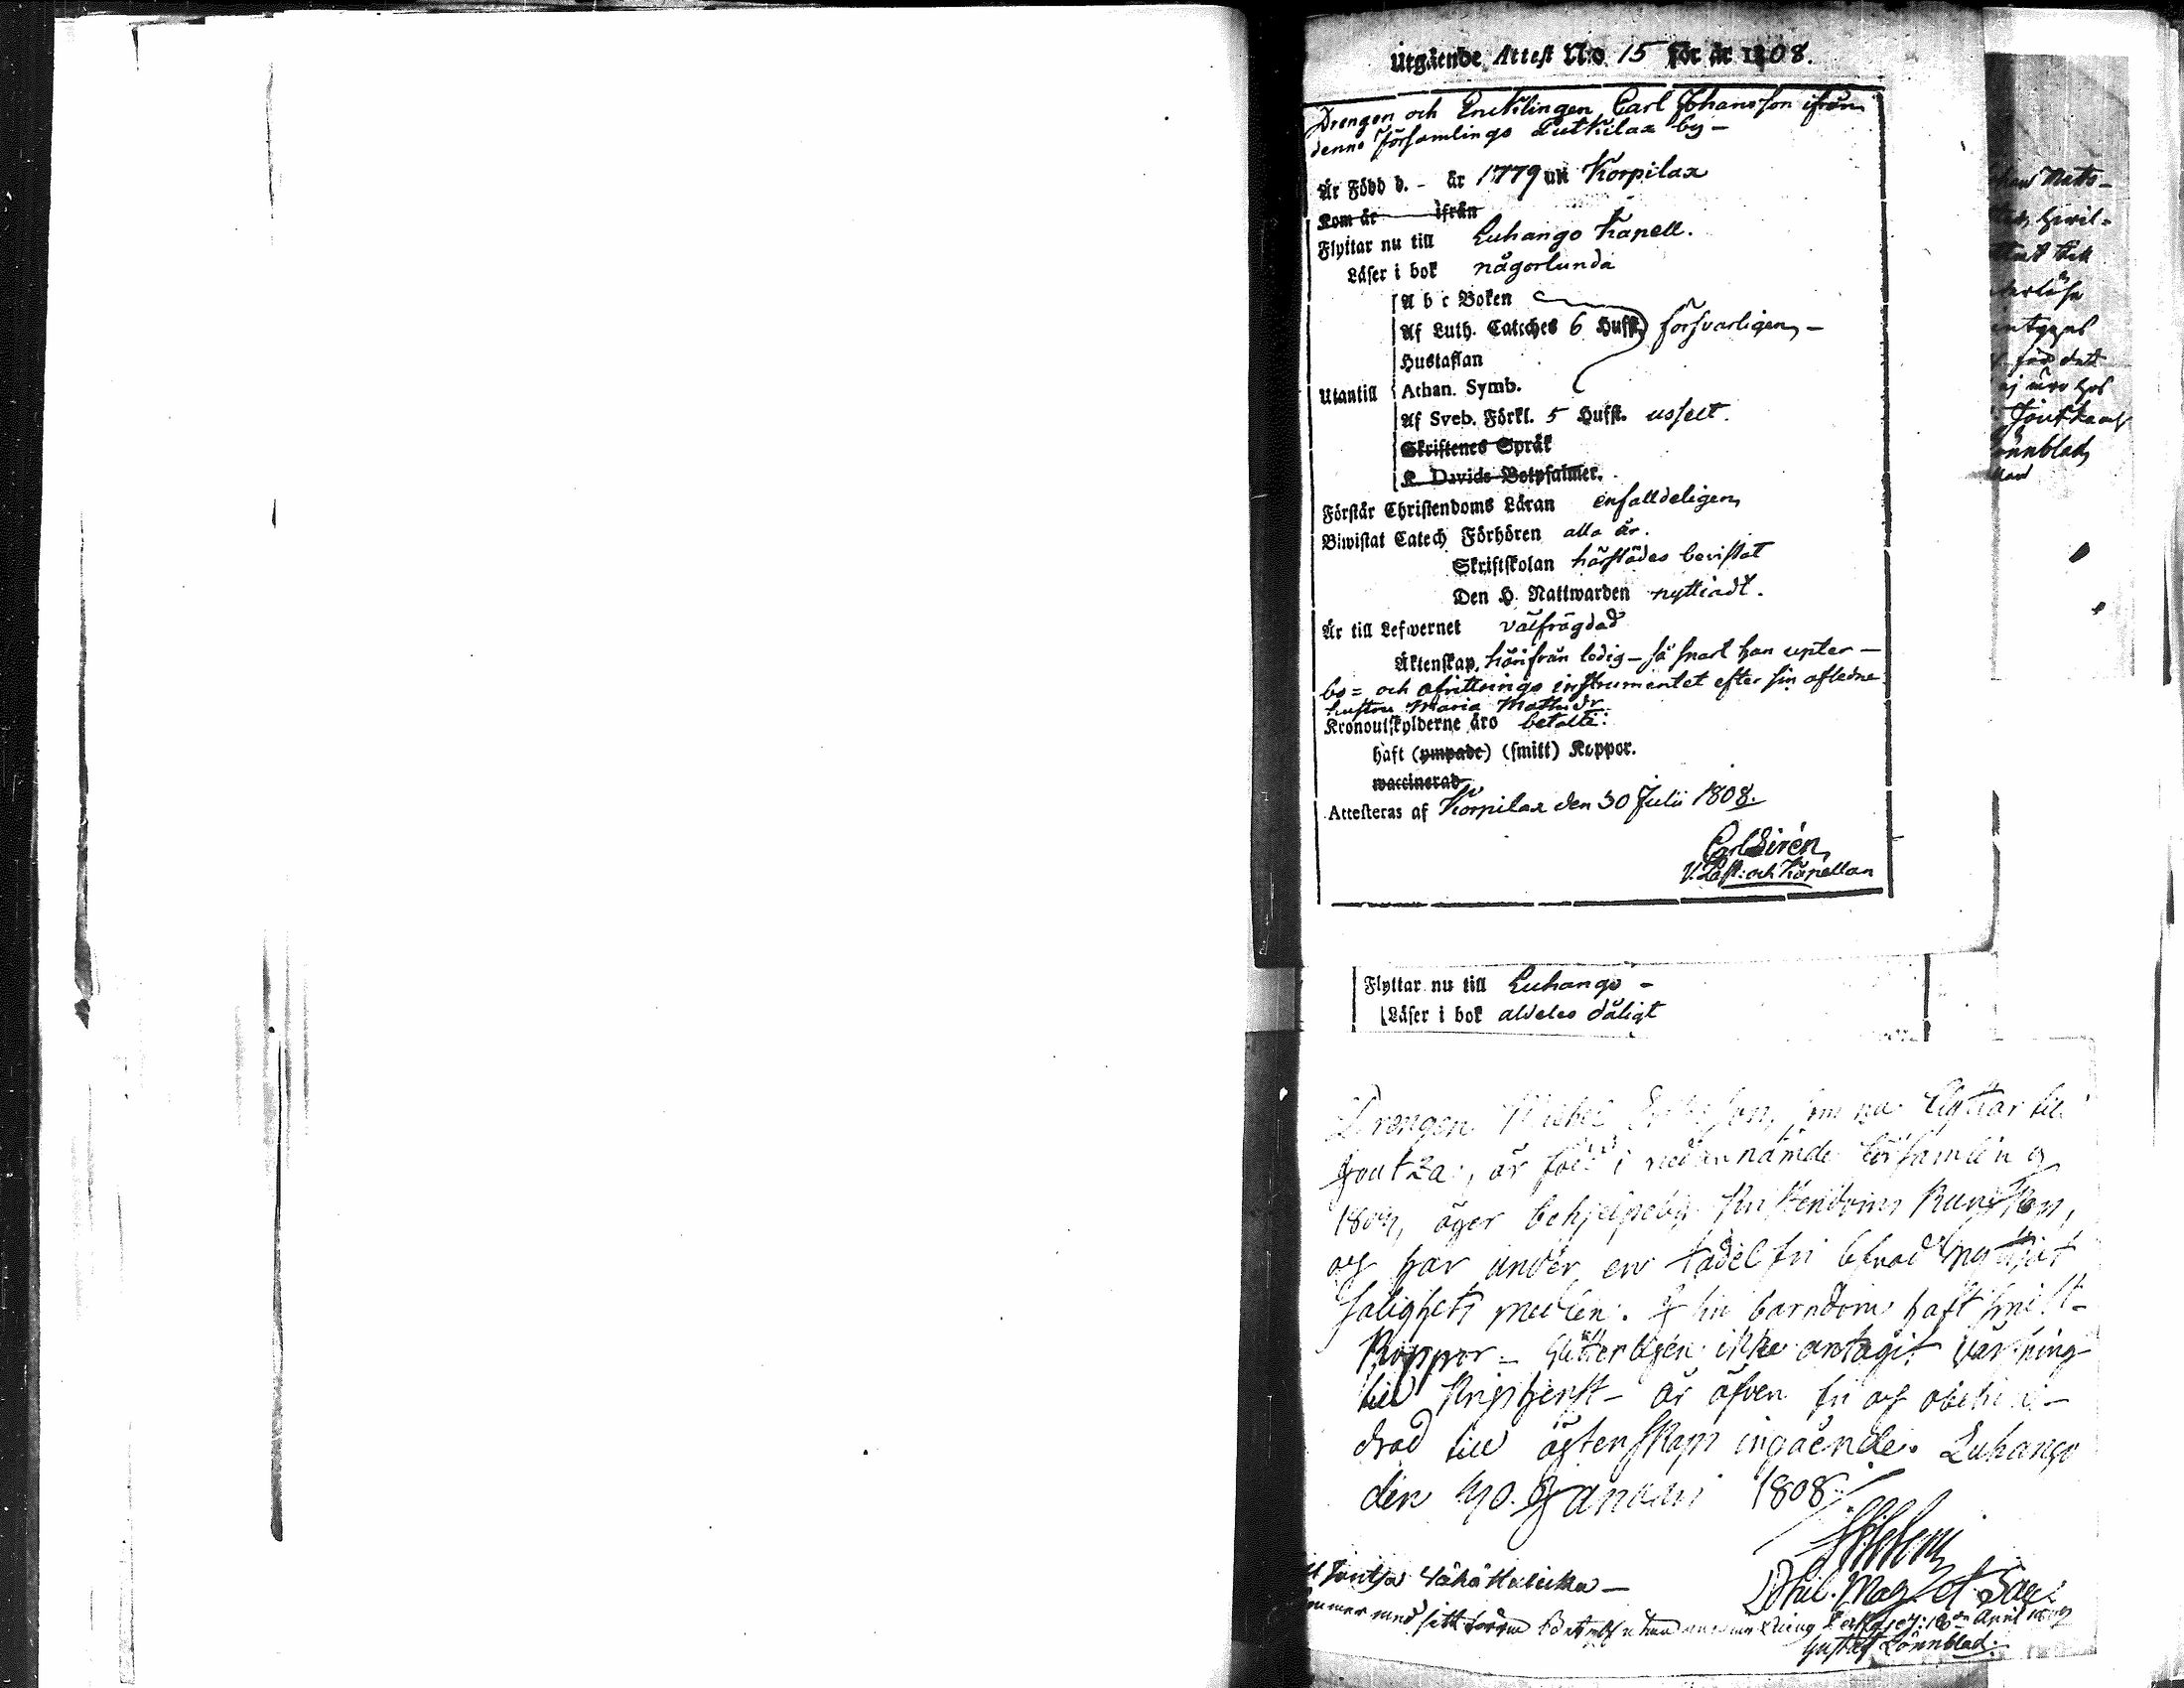 Utgående Attest N:o 15 för år 1808.
Drengen och Encklingen Carl Johansson ifrån
denna församlings Putkilax by -
Är Född d. - år 1779 uti Korpilax
Kom år ifrån
Flyttar nu till Luhango Kapell.
Läser i bok någorlunda
A b c Boken
Af Luth. Cateches 6 Hufst. försvarligen, -
Hustaflan
Utantill Athan. Symb.
Af Sveb. Förkl. 5 Hufst. usselt.
Skriftenes Språk
K. Davids Botpsalmer.
Förstår Christendoms Läran enfalldeligen,
Biwistat Catech Förhören alla år.
Skriftskolan härstädes bevistat
Den H. Nattwarden nyttiadt.
Är till Lefwernet välfrägdad
Äktenskap, härifrån ledig - så snart han upter -
bo= och afvittrings instrumentet efter sin aflednе
hustru Maria Mattsdr
Kronoutskylderne äro betalte:
haft (ympade) (smitt) Koppor.
waccinerad
Attesteras af Korpilax den 30 Julii 1808.
Carl Sirén,
V. Past: och Kapellan
Flyttar nu till Luhango -
Läser i bok aldeles dåligt
Drengen Michel som nu flyttar till
Joutza, är född i nedannämde församling
äger behjelpelig Kristendoms Kunskap,
och har under en tadelfri lefnad nyttjat
salighets medlen. I sin barndom haft smitt-
Koppor - ikke antagit värfning
till Krigstjenst - är äfven fri och obehin-
drad till ägtenskaps ingående. Luhango
den Januari 1808.
Phil. Mag. et Sac.
Joutsa
med sitt April
Gustaf Lönnblad.
Mats-
intygas
för det
Lönnblad,